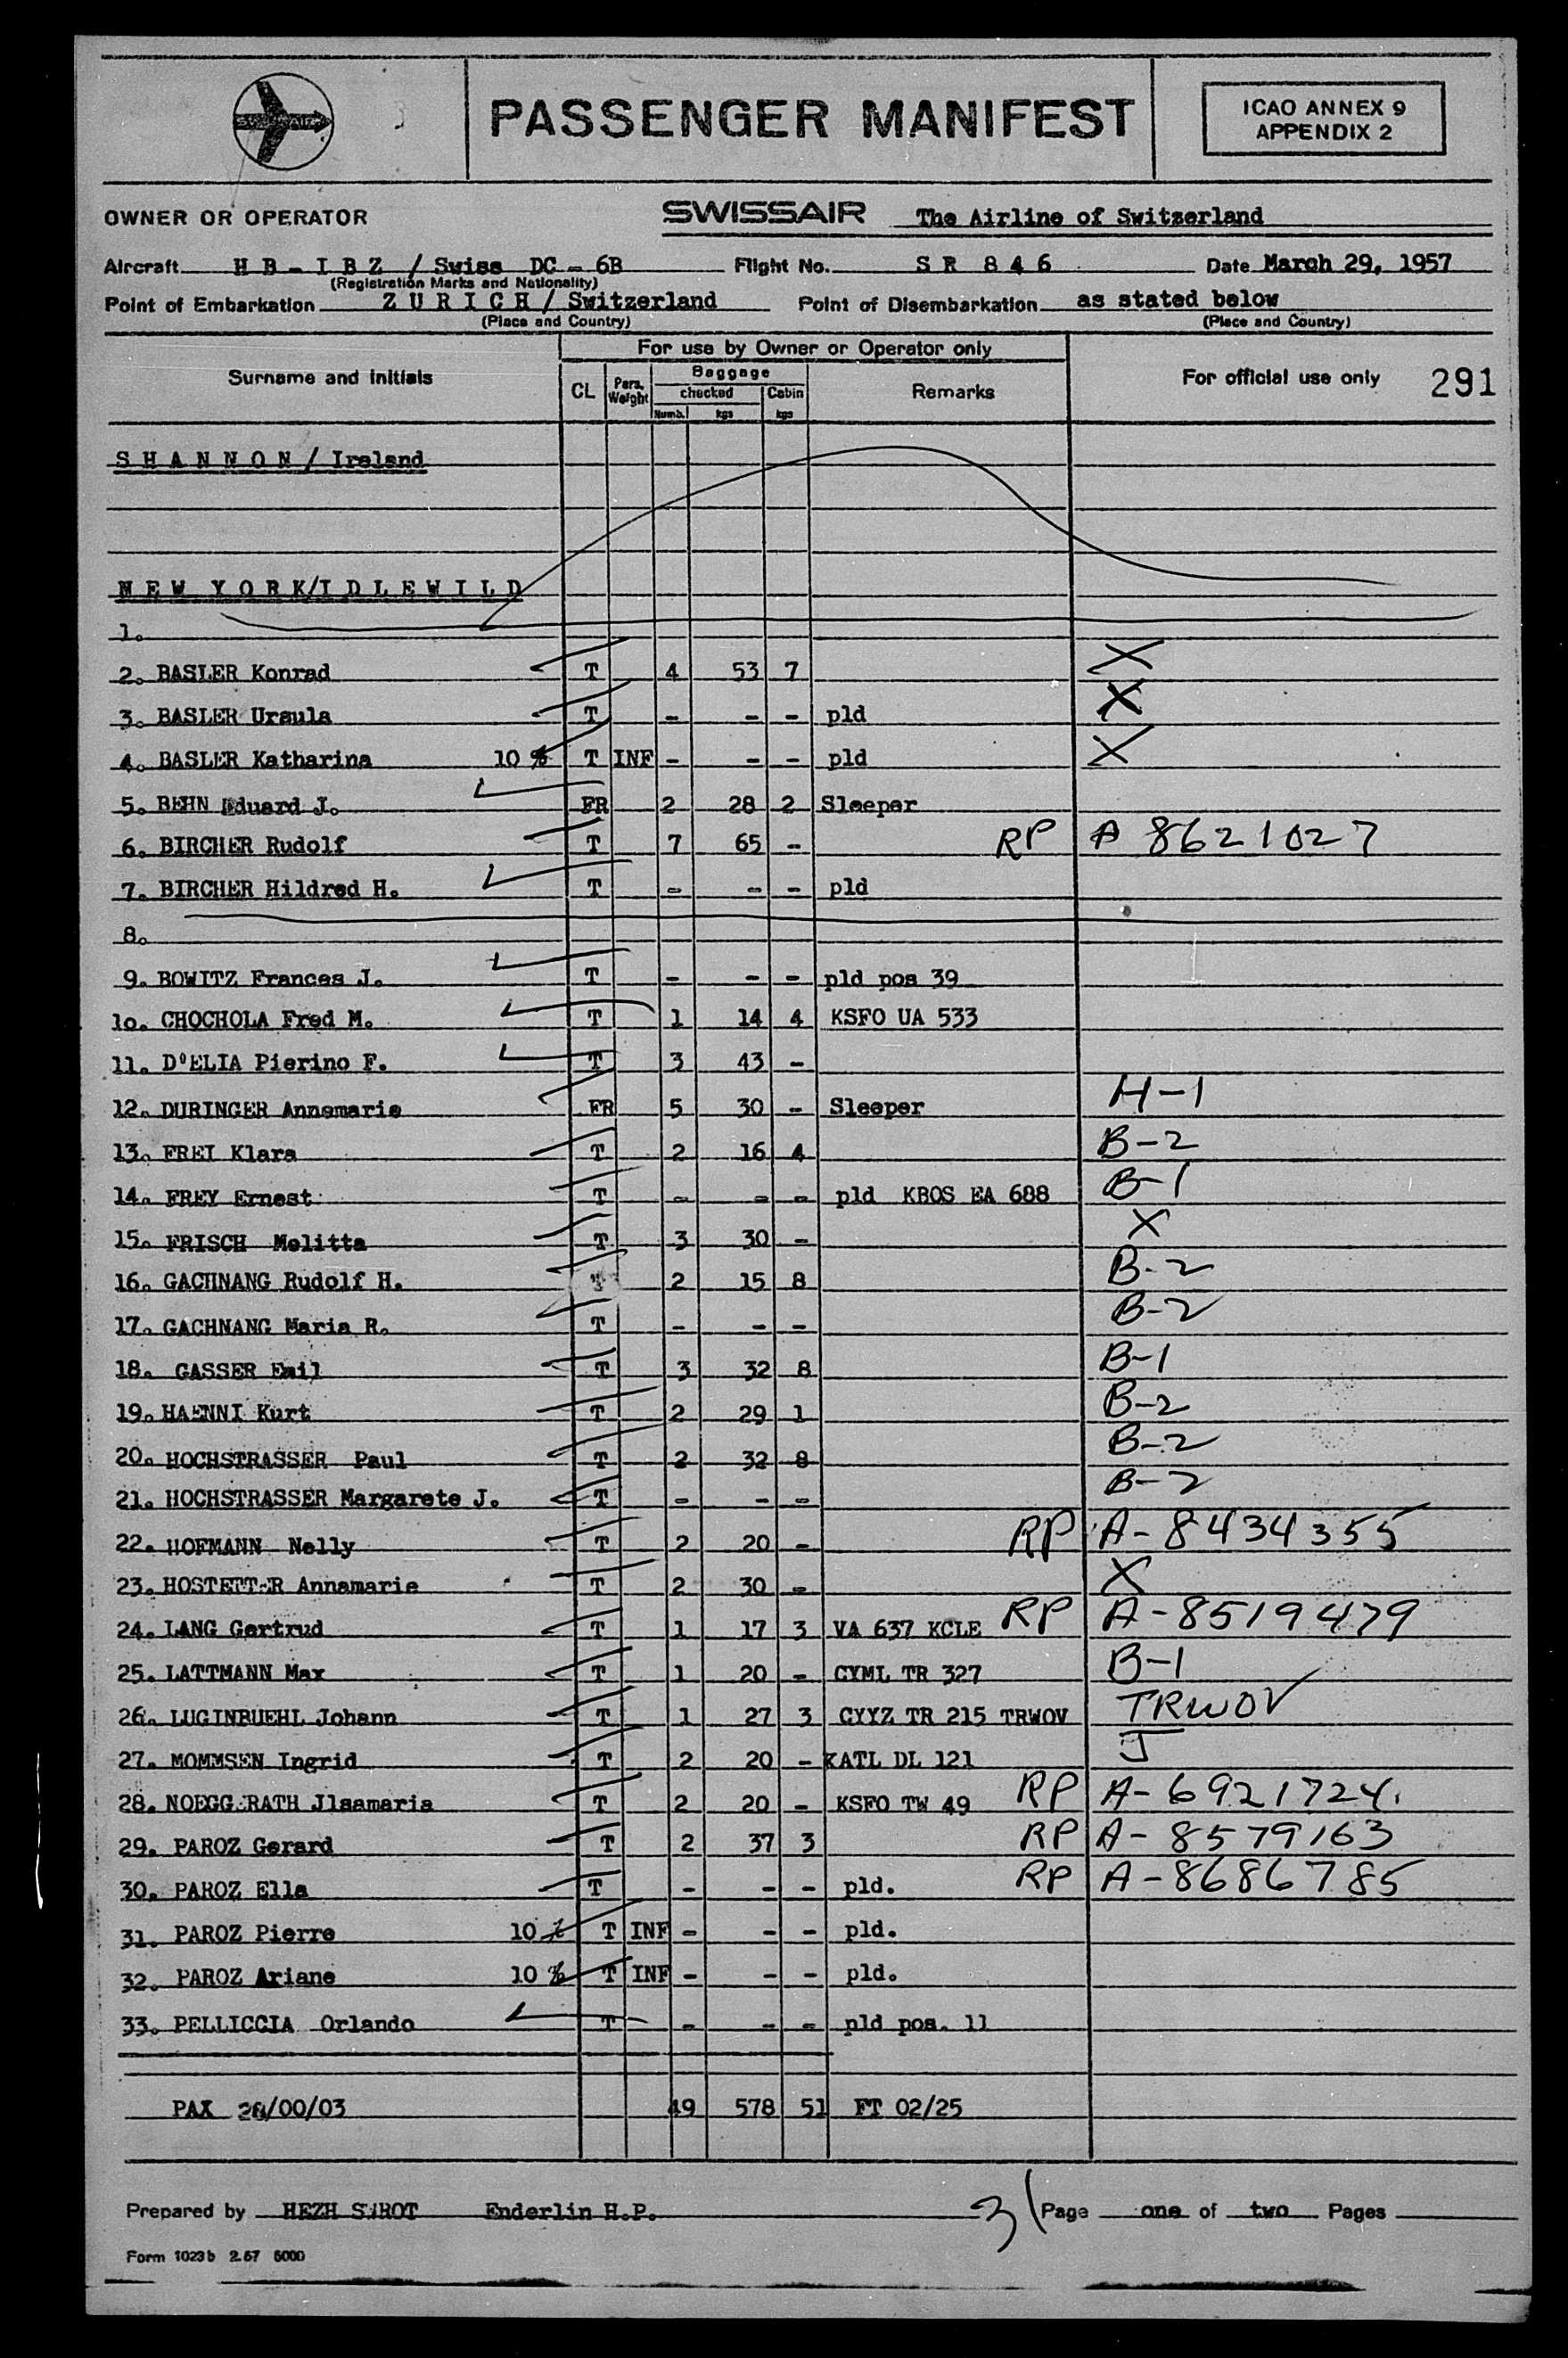 PASSENGER MANIFEST
ICAO ANNEX 9
APPENDIX 2
OWNER OR OPERATOR SWISSAIR The Airline of Switzerland
Aircraft H B - I B Z / Swiss DC - 6B Flight No. S R 8 4 6 Date March 29, 1957
(Registration Marks and Nationality)
Point of Embarkation Z U R I C H / Switzerland Point of Disembarkation as stated below
(Place and Country) (Place and Country)
For use by Owner or Operator only
Surname and initials CL Pers. Weight Baggage checked Numb. kgs Cabin kgs Remarks For official use only 291
S H A N N O N / Ireland
N E W Y O R K/I D L E W I L D
1.
2. BASLER Konrad T 4 53 7 X
3. BASLER Ursula T - - - pld X
4. BASLER Katharina 10 % T INF - - - pld X
5. BEHN Eduard J. FR 2 28 2 Sleeper
6. BIRCHER Rudolf T 7 65 - RP A 8621027
7. BIRCHER Hildred H. T - - - pld
8.
9. BOWITZ Frances J. T - - - pld pos 39
10. CHOCHOLA Fred M. T 1 14 4 KSFO UA 533
11. D'ELIA Pierino F. T 3 43 -
12. DURINGER Annemarie FR 5 30 - Sleeper H-1
13. FREI Klara T 2 16 4 B-2
14. FREY Ernest T - - - pld KBOS EA 688 B-1
15. FRISCH Melitta T 3 30 - X
16. GACHNANG Rudolf H. T 2 15 8 B-2
17. GACHNANG Maria R. T - - - B-2
18. GASSER Emil T 3 32 8 B-1
19. HAENNI Kurt T 2 29 1 B-2
20. HOCHSTRASSER Paul T 2 32 8 B-2
21. HOCHSTRASSER Margarete J. T - - - B-2
22. HOFMANN Nelly T 2 20 - RP A-8434355
23. HOSTETTER Annamarie T 2 30 - X
24. LANG Gertrud T 1 17 3 VA 637 KCLE RP A-8519479
25. LATTMANN Max T 1 20 - CYML TR 327 B-1
26. LUGINBUEHL Johann T 1 27 3 CYYZ TR 215 TRWOV TRWOV
27. MOMMSEN Ingrid T 2 20 - KATL DL 121 J
28. NOEGGERATH Jlsamaria T 2 20 - KSFO TW 49 RP A-6921724.
29. PAROZ Gerard T 2 37 3 RP A-8579163
30. PAROZ Ella T - - - pld. RP A-8686785
31. PAROZ Pierre 10 % T INF - - - pld.
32. PAROZ Ariane 10 % T INF - - - pld.
33. PELLICCIA Orlando T - - - pld pos. 11
PAX /00/03 49 578 51 FT 02/25
Prepared by HEZH Enderlin H.P. 31 Page one of two Pages
Form 1023b 2.57 5000